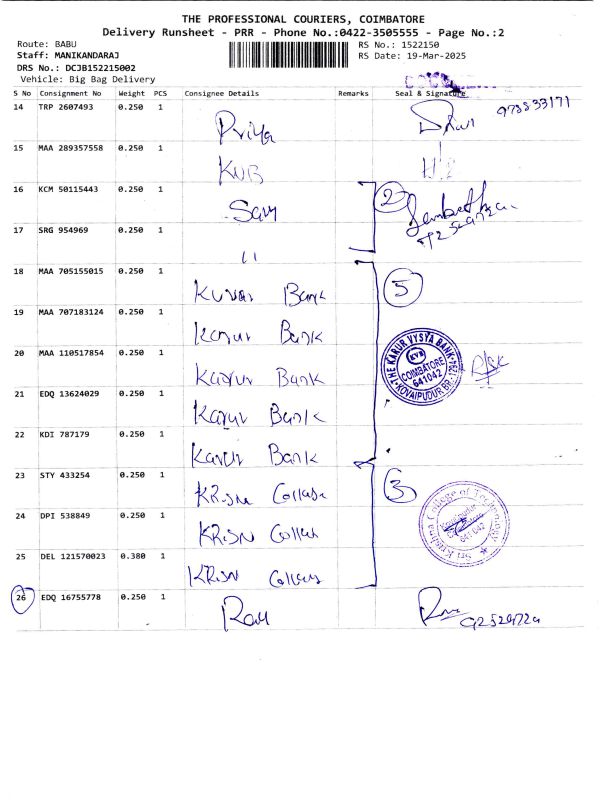 THE PROFESSIONAL COURIERS, COIMBATORE
Delivery Runsheet - PRR - Phone No.:0422-3505555 - Page No.:2
Route: BABU
Staff: MANIKANDARAJ
DRS No.: DCJB152215002
Vehicle: Big Bag Delivery
RS No.: 1522150
RS Date: 19-Mar-2025
S No Consignment No Weight PCS Consignee Details Remarks Seal & Signature
14 TRP 2607493 0.250 1 Priya
15 MAA 289357558 0.250 1 KVB
16 KCM 50115443 0.250 1 2
17 SRG 954969 0.250 1 11
18 MAA 705155015 0.250 1 Bank 5
19 MAA 707183124 0.250 1 Karur Bank
20 MAA 110517854 0.250 1 Karur Bank
THE KARUR VYSYA BANK
KVB
COIMBATORE
641042
KOVAIPUDUR BR.
21 EDQ 13624029 0.250 1 Karur Bank
22 KDI 787179 0.250 1 Karur Bank
23 STY 433254 0.250 1 3
24 DPI 538849 0.250 1 KRISN
Sri Krishna College of Technology
25 DEL 121570023 0.380 1 KRISN
26 EDQ 16755778 0.250 1